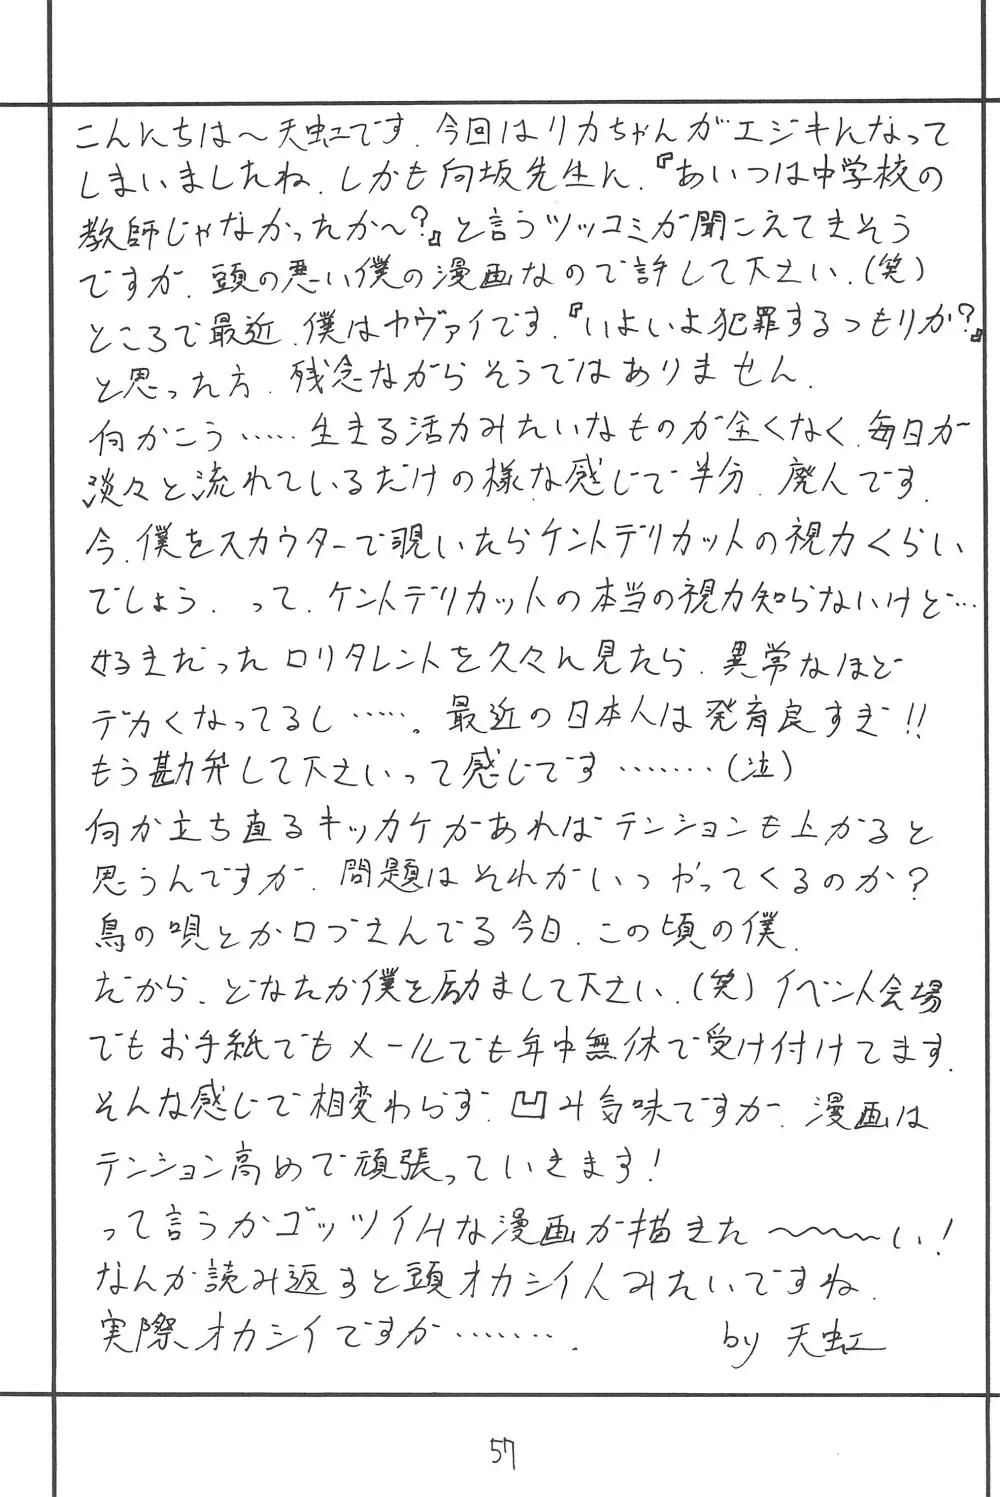 こんにちは～天虹です.今回はリカちゃんがエジキになって
しまいましたね.しかも向坂先生に.『あいつは中学校の
教師じゃなかったか～?』と言うツッコミが聞こえてきそう
ですが.頭の悪い僕の漫画なので許して下さい.(笑)
ところで最近.僕はヤヴァイです.『いよいよ犯罪するつもりか?』
と思った方.残念ながらそうではありません.
何かこう……生きる活力みたいなものが全くなく.毎日が
淡々と流れているだけの様な感じで半分.廃人です.
今.僕をスカウターで覗いたらケントデリカットの視力くらい
でしょう.って.ケントデリカットの本当の視力知らないけど…
好きだったロリタレントを久々に見たら.異常なほど
デカくなってるし……。最近の日本人は発育良すぎ!!
もう勘弁して下さいって感じです………(泣)
何か立ち直るキッカケがあればテンションも上がると
思うんですが.問題はそれがいつやってくるのか?
鳥の唄とか口づさんでる今日.この頃の僕.
だから.どなたか僕を励まして下さい.(笑)イベント会場
でもお手紙でもメールでも年中無休で受け付けてます.
そんな感じで相変わらず.凹み気味ですが.漫画は
テンション高めで頑張っていきます!
って言うかゴッツイHな漫画が描きた～～～い!
なんか読み返すと頭オカシイ人みたいですね.
実際オカシイですが………. by 天虹
57